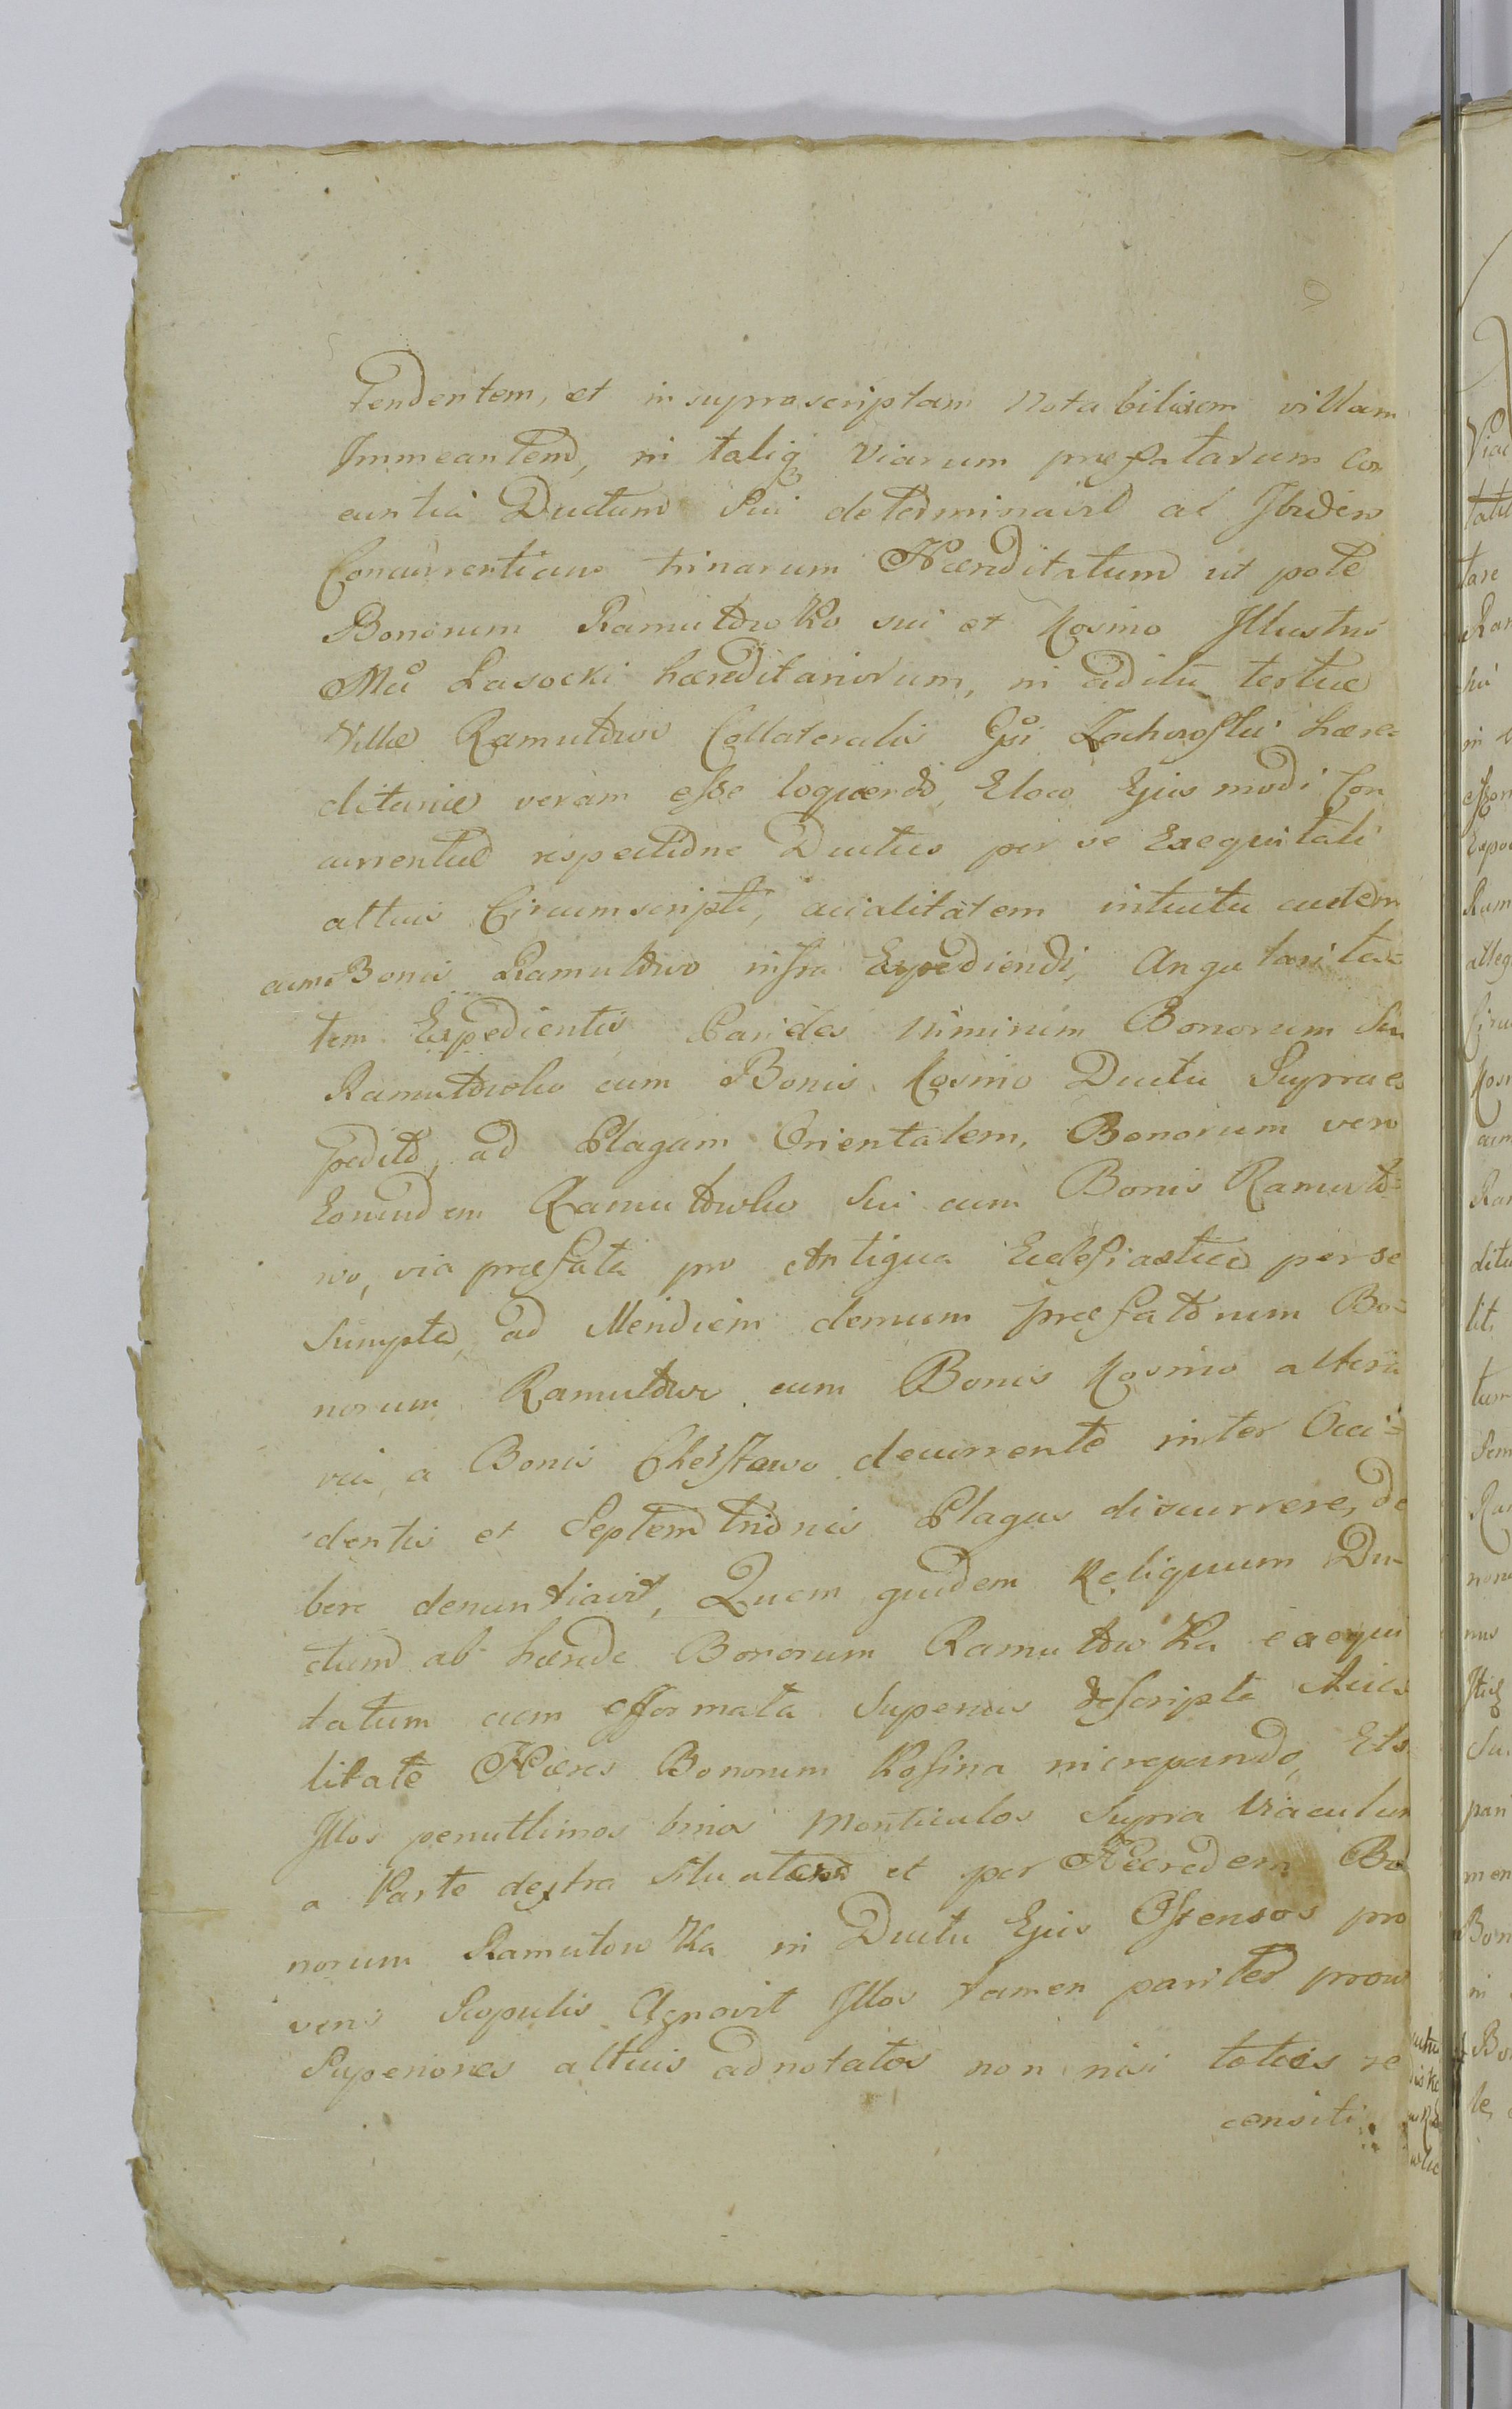 tendentem, et in supra scriptam notabiliorem villam
Immeantem, in taliq viarum præfatarum Con
cursu Ductum sui determinavit ac Ibidem
Concurrentiam trinarum Hæreditatum ut pote
Bonorum Ramutowko sui et Kosino Illustris
Mci Lasocki hæreditariorum, in aditu tertiæ
Villæ Ramutowo Collateralis Gsi Zochowski hære=
ditariæ veram esse loquendo, E loco Ejus modi Con
currentiæ respective Ductus per se Exequitati
altius Circumscripti, acialitatem intuitu eadem
cum Bonis Ramutowo infra Expediendi, Angularita=
tem Expedientis Parides nimirum Bonorum Sui
Ramutowko cum Bonis Kosino Ductu Supra ex
pedito, ad Plagam Orientalem, Bonorum vero
Eorundem Ramutowko Sui cum Bonis Ramuto=
wo, via præfata pro Antiqua Eclesiastica per se
Sumpta, ad Meridiem demum præfatorum Bo=
norum Ramutowo cum Bonis Kosino altera
via, a Bonis Chełstowo decurrente inter Occi=
dentis et Septemtrionis Plagas discurrere, de
bere denuntiavit, Quem quidem Reliquum Du=
ctum ab hærede Bonorum Ramutowka exequi
tatum cum efformata Superius descripta Acia
litate Hæres Bonorum Kosina increpando, Et
Illos penultimos binos Monticulos Supra Viaculum
a Parte dextra situatos et per Hæredem Bo
norum Ramutowka in Ductu Ejus Ostensos pro
veris Scopulis Agnovit Illos tamen pariter prout
Superiores altius adnotatos non nisi toties re
censiti